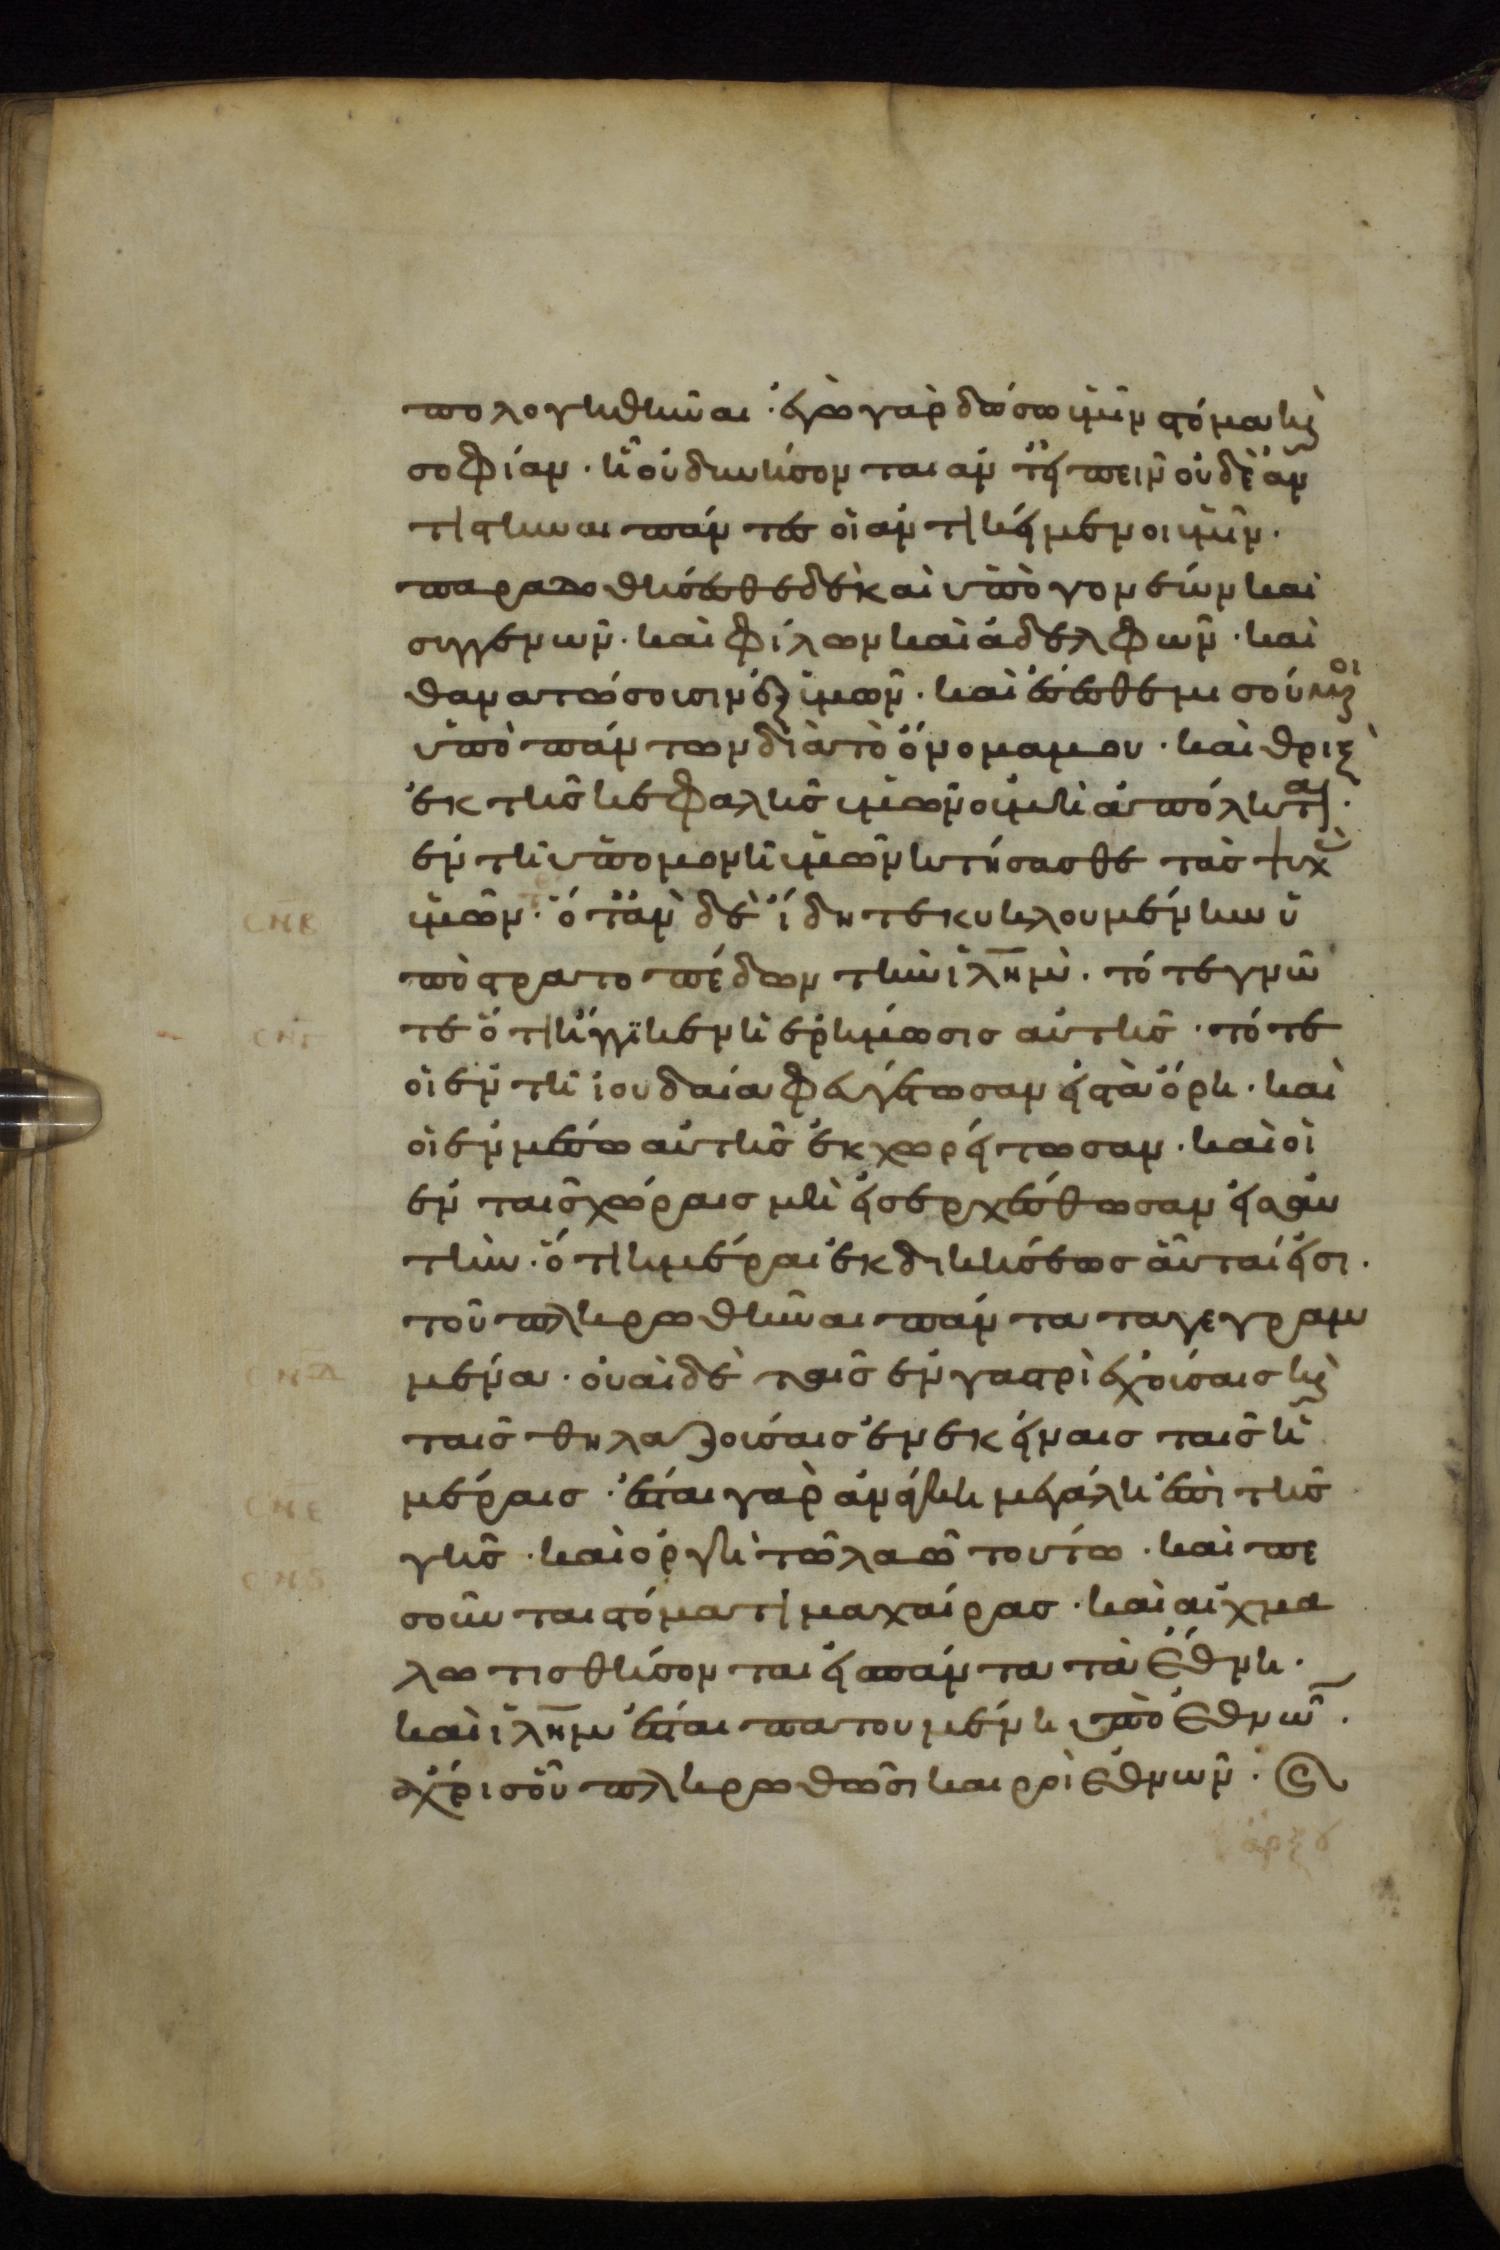 πολογηθῆναι· ἐγὼ γὰρ δώσω ὑμῖν στόμα κ(αὶ)
σοφίαν· ᾗ οὐ δυνήσονται ἀντειπεῖν οὐδὲ ἀν
τιστῆναι πάντες οἱ ἀντικείμενοι ὑμῖν·
παραδοθήσεσθε δὲ καὶ ὑπὸ γονέων καὶ
συγγενῶν· καὶ φίλων καὶ ἀδελφῶν· καὶ
θανατώσουσιν ἐξ ὑμῶν· καὶ ἔσεσθε μισούμ(εν)οι
ὑπὸ πάντων διὰ τὸ ὄνομα μου· καὶ θρὶξ
ἐκ τῆς κεφαλῆς ὑμῶν οὐ μὴ ἀπόληται·
ἐν τῇ ὑπομονῇ ὑμῶν κτήσασθε τὰς ψυχὰ(ς)
ὑμῶν· ὅταν δὲ ἴδητε κυκλουμένην ὑ
πὸ στρατοπέδων τὴν ἱλημ· τότε γνῶ
τε ὅτι ἤγγικεν ἡ ἐρήμωσις αὐτῆς· τότε
οἱ ἐν τῇ ἰουδαία φευγέτωσαν εἰς τὰ ὄρη· καὶ
οἱ ἐν μέσω αὐτῆς ἐκχωρείτωσαν· καὶ οἱ
ἐν ταῖς χώραις μὴ εἰσερχέσθωσαν εἰς αὐ
τήν· ὅτι ἡμέραι ἐκδικήσεως αὗταί εἰσι·
τοῦ πληρωθῆναι πάντα τα γεγραμ
μένα· οὐαὶ δὲ ταῖς ἐν γαστρὶ ἐχούσαις κ(αὶ)
ταῖς θηλαζούσαις ἐν ἐκείναις ταῖς ἡ
μέραις· ἔσται γὰρ ἀνάγκη μεγάλη ἐπὶ τῆς
γῆς· καὶ ὀργὴ τῶ λαῶ τούτω· καὶ πε
σοῦνται στόματι μαχαίρας· καὶ αἰχμα
λωτισθήσονται εἰς πάντα τὰ ἔθνη·
καὶ ἱλημ ἔσται πατουμένη ὑπὸ ἐθνῶ(ν)·
ἄχρις οὗ πληρωθῶσι καιροὶ ἐθνῶν·
σνβ
σνγ
σνδ
σνε
σνς
ἀρξου